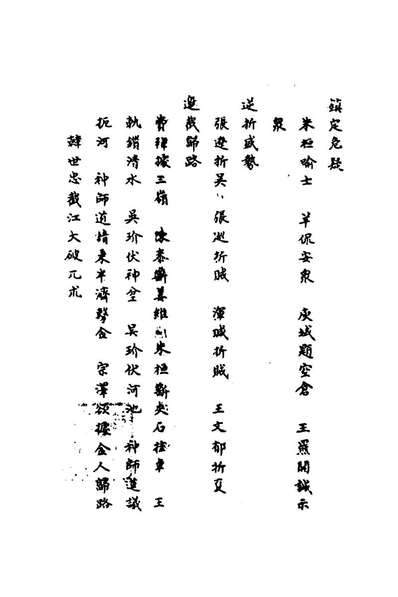 鎮定危疑
朱桓喻士 羊侃安衆 庾域題空倉 王羆開誠示
衆
逆折盛勢
張遼折吳 張巡折賊 渾瑊折賊 王文郁折夏
邀截歸路
費禕據三嶺 陳泰斷姜維 朱桓斷夾石挂車 王
執鎖清水 吳玠伏神坌 吳玠伏河池 神師道議
扼河 神師道請乘半濟擊金 宗澤欲據金人歸路
韓世忠截江大破兀朮